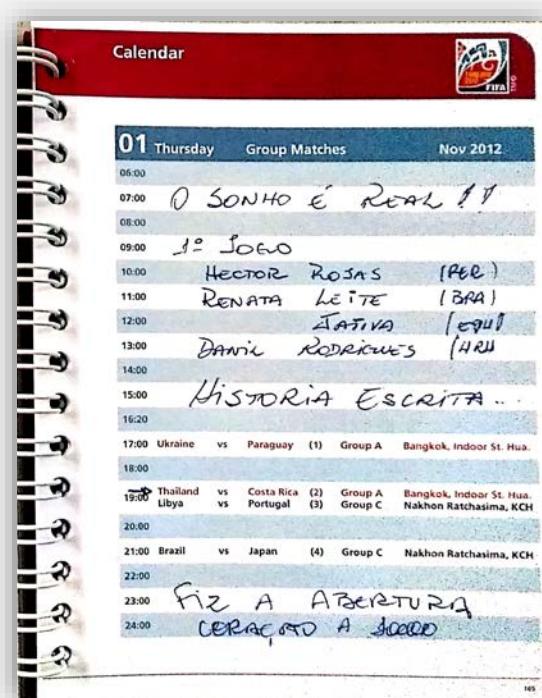 Calendar
FIFA
01 Thursday Group Matches Nov 2012
06:00
07:00 O SONHO É REAL !!
08:00
09:00 1º JOGO
10:00 HECTOR ROJAS (PER)
11:00 RENATA LEITE (BRA)
12:00 JATIVA (EQU)
13:00 DANIL RODRIGUES (URU
14:00
15:00 HISTORIA ESCRITA..
16:20
17:00 Ukraine vs Paraguay (1) Group A Bangkok, Indoor St. Hua.
18:00
19:00 Thailand vs Costa Rica (2) Group A Bangkok, Indoor St. Hua.
Libya vs Portugal (3) Group C Nakhon Ratchasima, KCH
20:00
21:00 Brazil vs Japan (4) Group C Nakhon Ratchasima, KCH
22:00
23:00 FIZ A ABERTURA
24:00 A
165